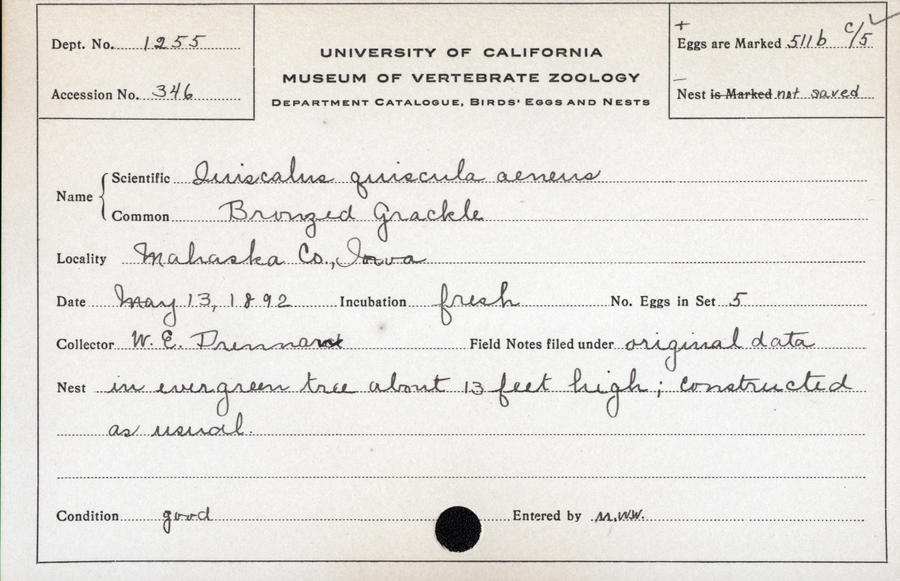 Dept. No. 1255
Accession No. 346
UNIVERSITY OF CALIFORNIA
MUSEUM OF VERTEBRATE ZOOLOGY
DEPARTMENT CATALOGUE, BIRDS' EGGS AND NESTS
+
Eggs are Marked 511b c/5 ✓
–
Nest is Marked not saved
Name { Scientific Quiscalus quiscula aeneus
Common Bronzed Grackle
Locality Mahaska Co., Iowa
Date May 13, 1892 Incubation fresh No. Eggs in Set 5
Collector W. E. Drennan Field Notes filed under original data
Nest in evergreen tree about 13 feet high; constructed
as usual.
Condition good Entered by M.W.W.